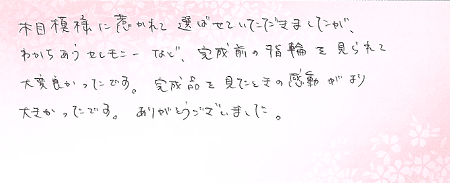 木目模様に惹かれて選ばせていただきましたが、
わかちあうセレモニーなど、完成前の指輪を見られて
大変良かったです。完成品を見たときの感動がより
大きかったです。ありがとうございました。